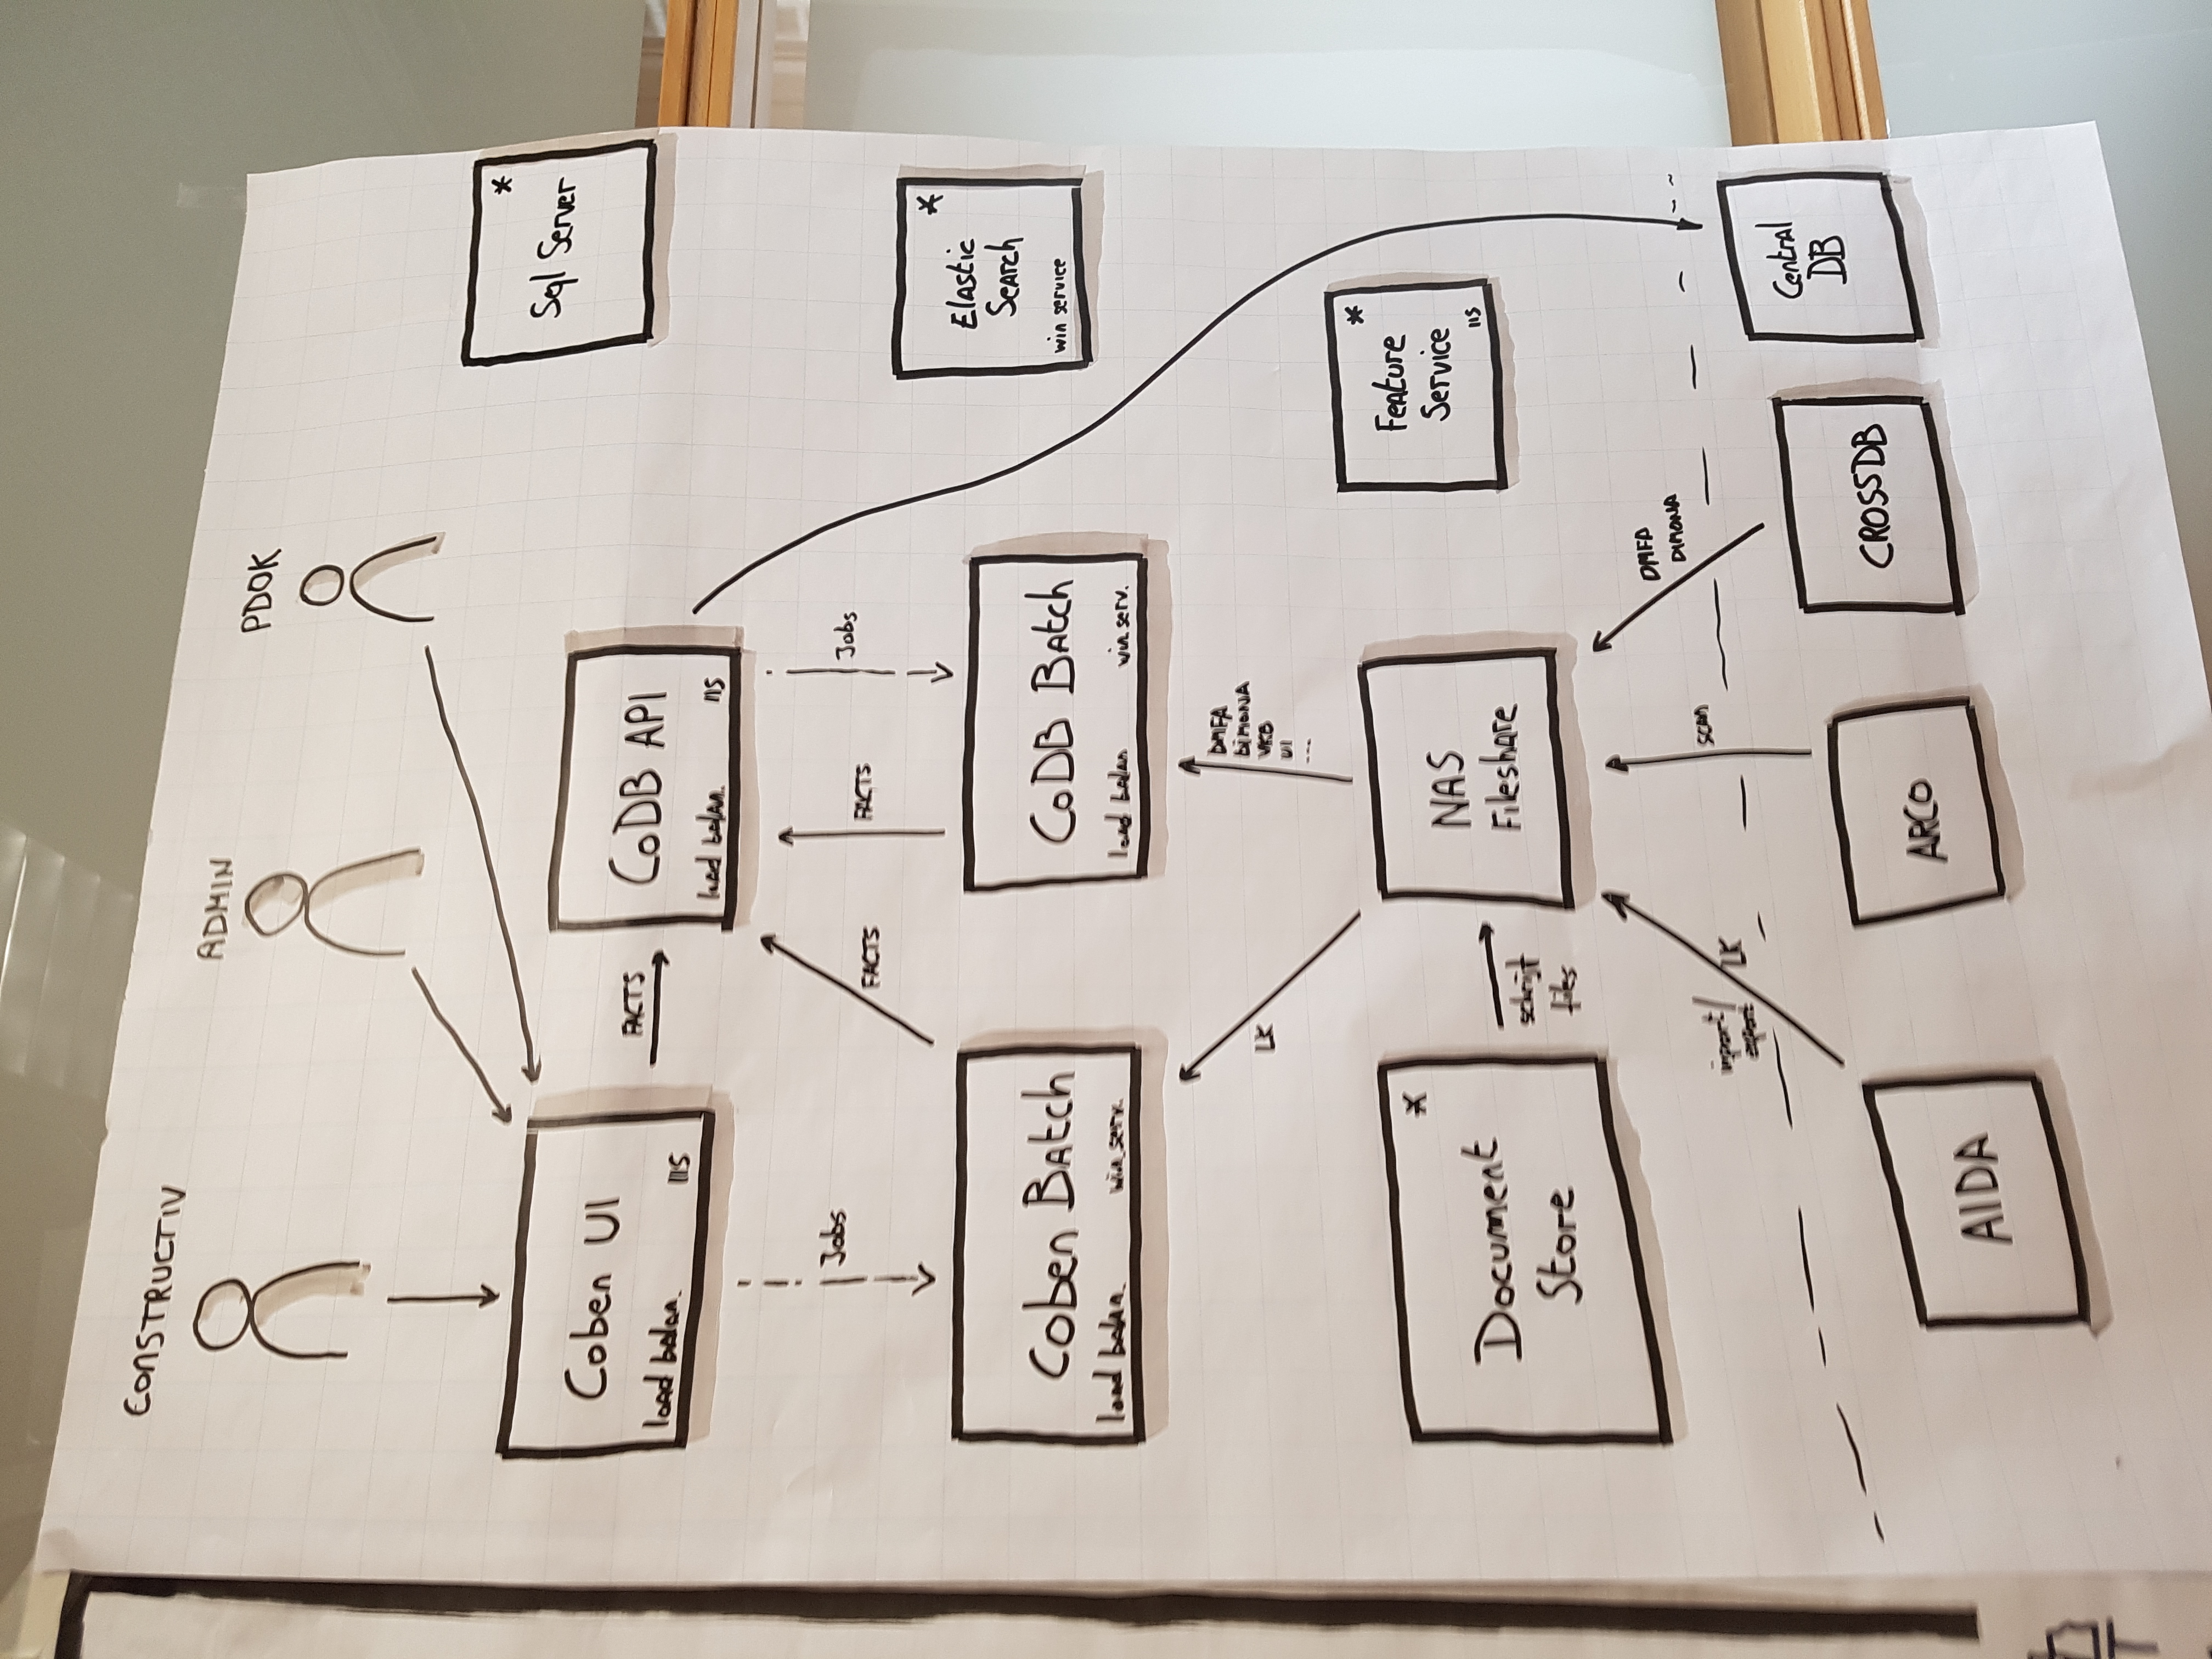 CONSTRUCTIV
ADMIN
PDOK
Coben UI
load balan. IIS
FACTS
CoDB API
load balan. IIS
*
Sql Server
Jobs
FACTS
FACTS
Jobs
Coben Batch
load balan. win serv.
CoDB Batch
load balan win serv.
*
Elastic
Search
win service
LK
DMFA
DIMONA
VKB
UI
...
*
Document
Store
schrijf
files
NAS
Fileshare
*
Feature
Service
IIS
import/
export
LK
scan
DMFA
DIMONA
AIDA
ARCO
CROSSDB
Central
DB